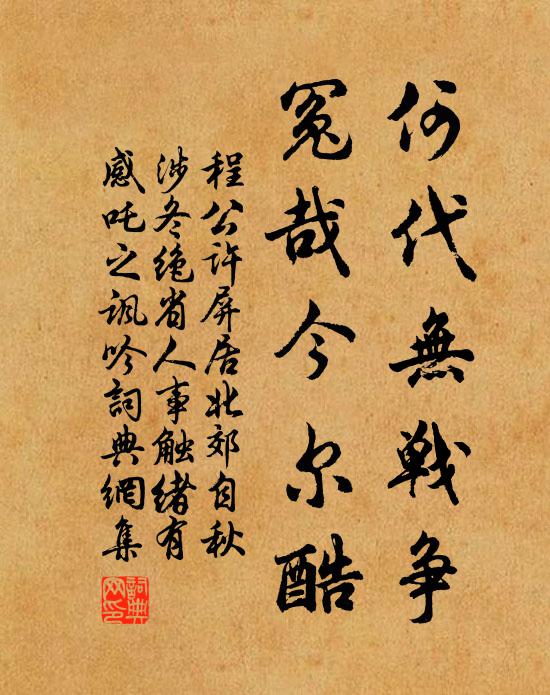 何代無戰争
冤哉今尔酷
程公许屏居北郊自秋
涉冬绝省人事触绪有
感吒之讽吟詞典網集
詞典网印